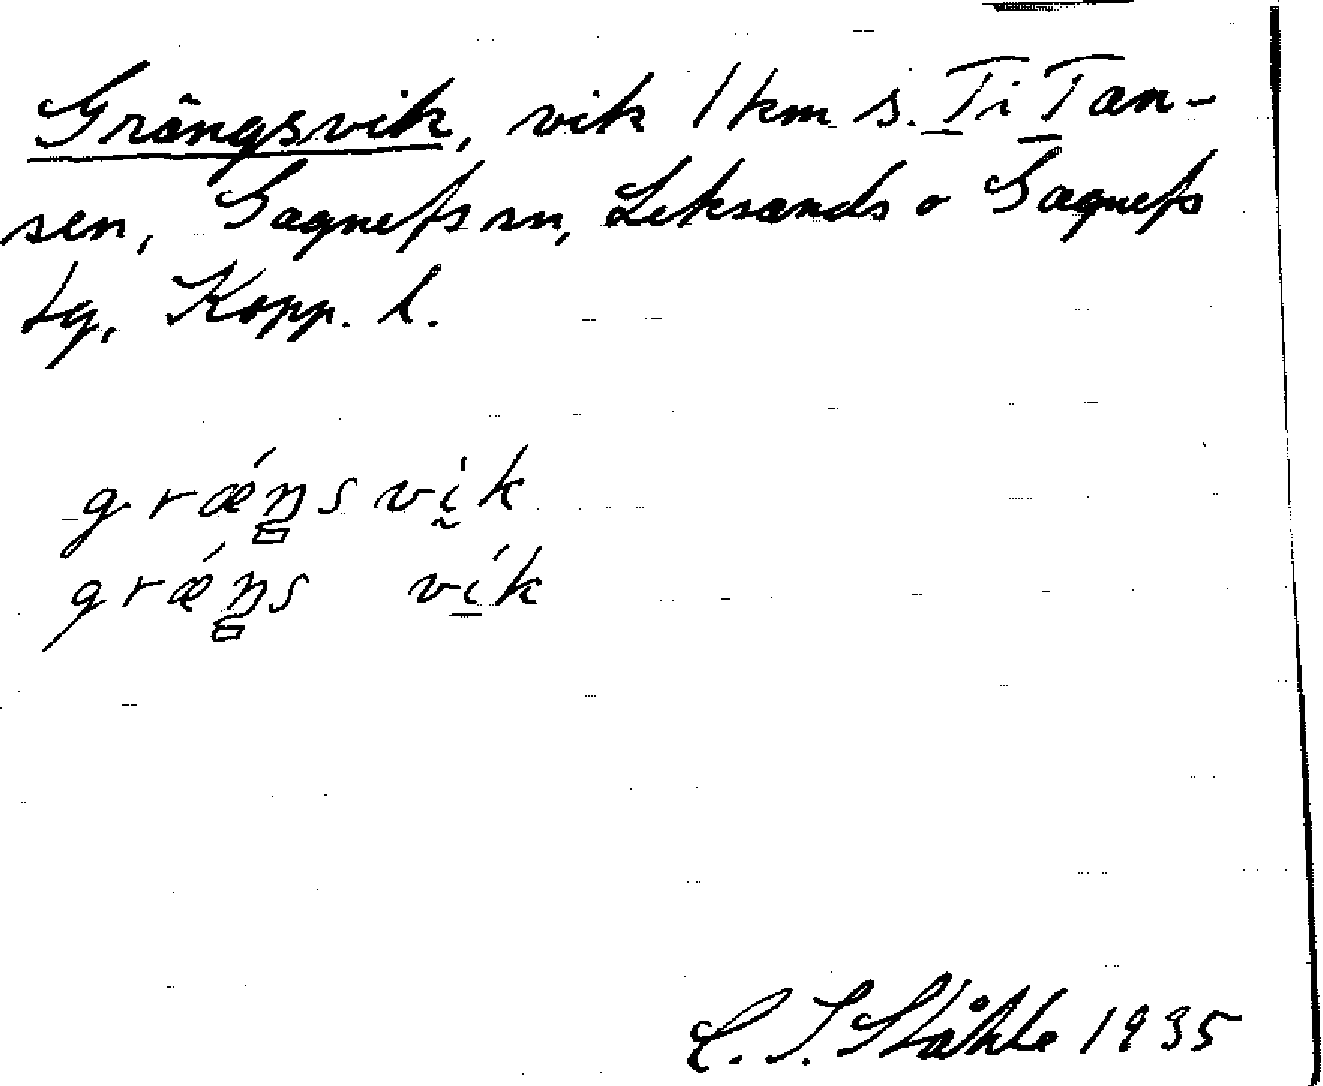 Grängsvik, vik 1 km s. Ti i Tan-
sen, Gagnefs sn, Leksands o Gagnefs
tg, Kopp. l.
grǽŋs vḭk
grǽŋs vík
C. I. Ståhle 1935